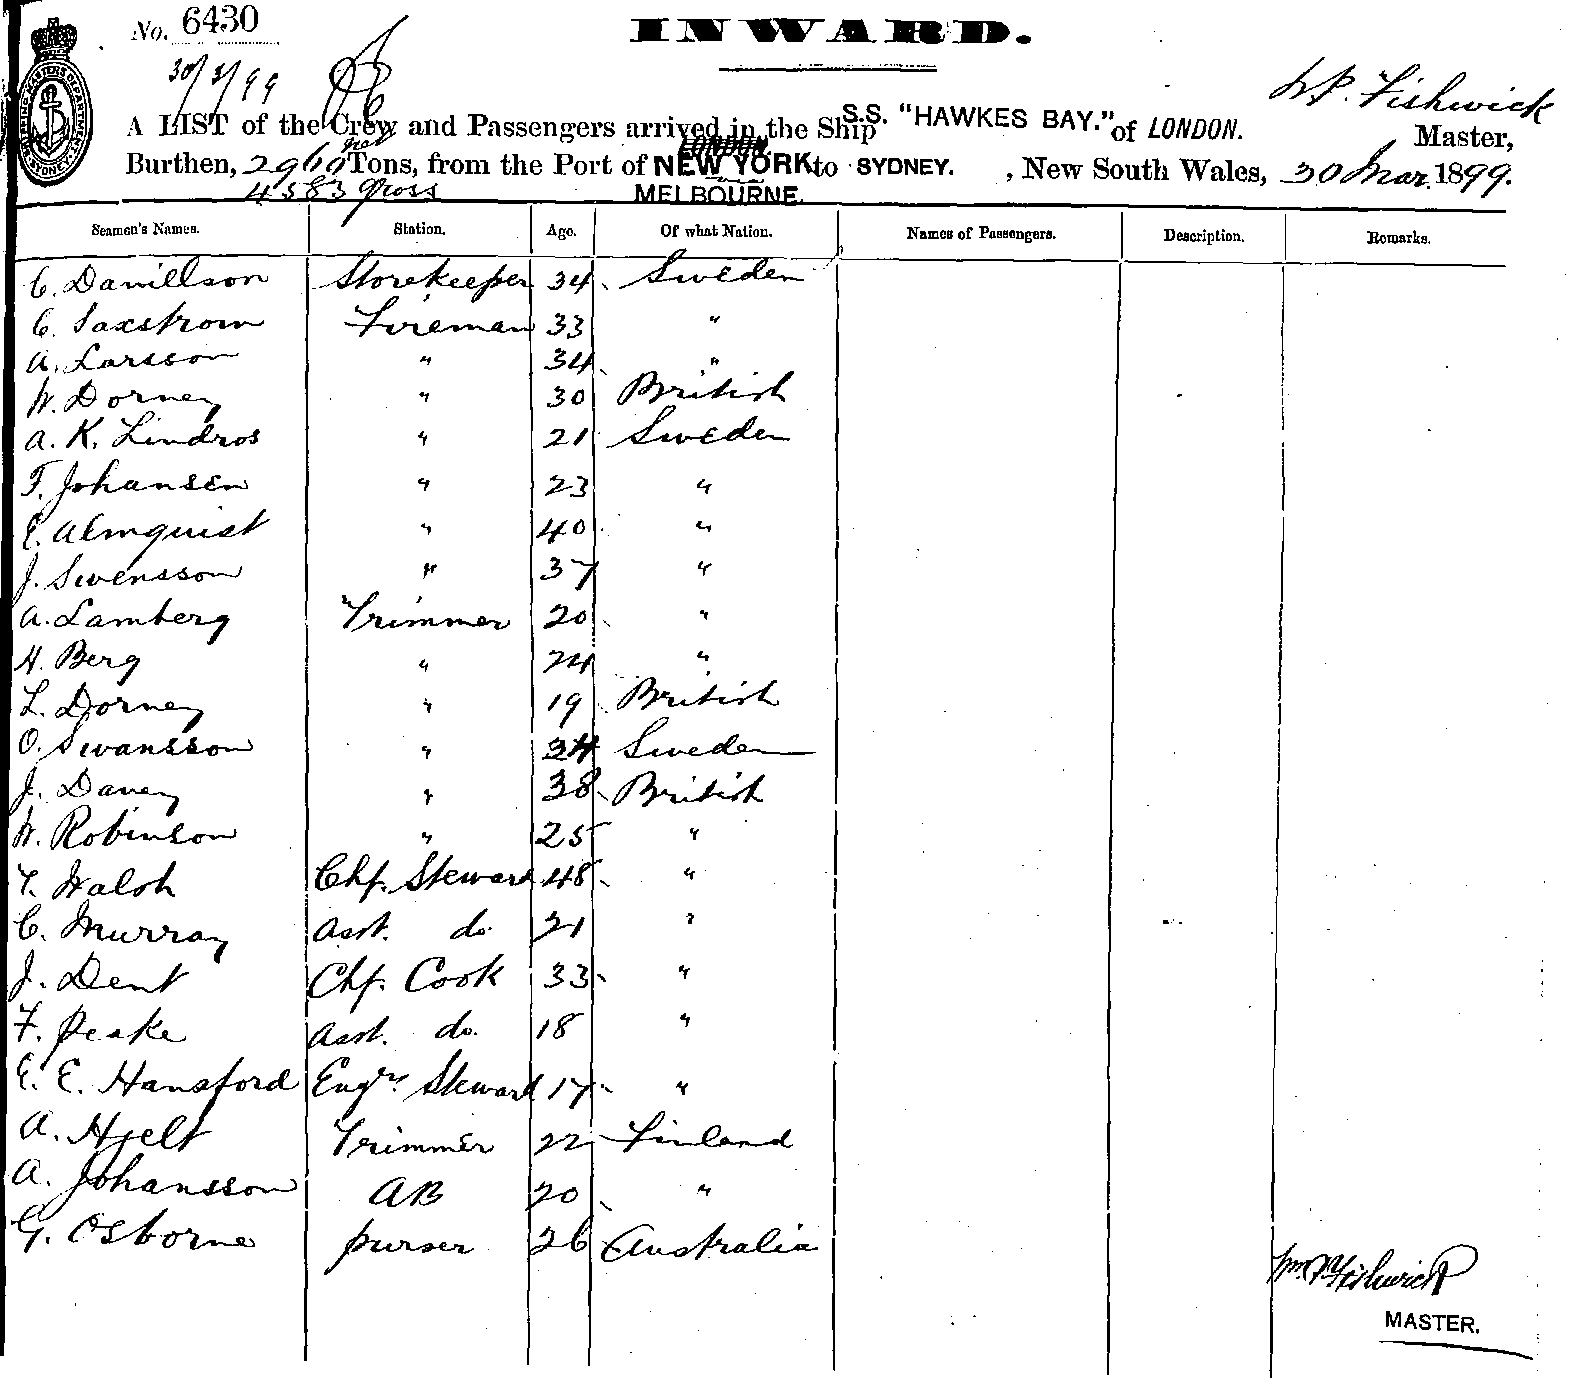 No. 6430
INWARD.
30/3/99
W.P. Fishwick
A LIST of the Crew and Passengers arrived in the Ship S.S. "HAWKES BAY." of LONDON. Master,
Burthen, 2960 net Tons, from the Port of LONDON NEW YORK to SYDNEY. , New South Wales, 30 Mar. 1899.
4583 gross MELBOURNE.
Seamen's Names. Station. Age. Of what Nation. Names of Passengers. Description. Remarks.
C. Danillson Storekeeper 34 Sweden
C. Saxstrom Fireman 33 "
A. Larsson " 34 "
W. Dorney " 30 British
A. K. Lindros " 21 Sweden
F. Johansen " 23 "
E. Almquist " 40 "
J. Swensson " 37 "
A. Lamberg Trimmer 20 "
H. Berg " 24 "
L. Dorney " 19 British
O. Swansson " 24 Sweden
J. Davey " 38 British
W. Robinson " 25 "
T. Walsh Chf. Steward 48 "
C. Murray Asst. do. 21 "
J. Dent Chf. Cook 33 "
F. Peake Asst. do. 18 "
E. E. Hansford Engrs. Steward 17 "
A. Hjelt Trimmer 22 Finland
A. Johansson AB 20 "
G. Osborne purser 26 Australia
Wm. P. Fishwick
MASTER.